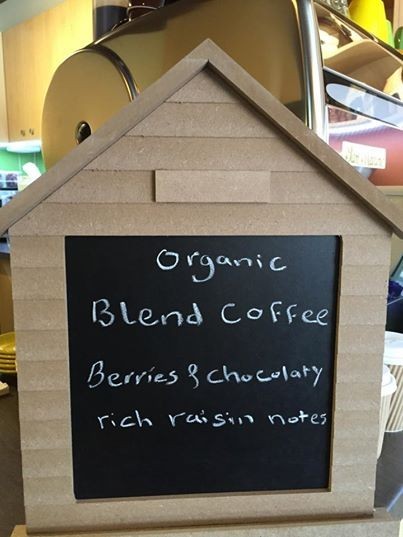 Organic
Blend Coffee
Berries & chocolaty
rich raisin notes